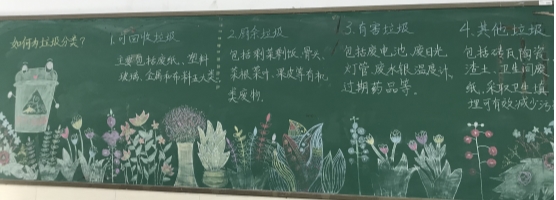 如何为垃圾分类?
1.可回收垃圾
主要包括废纸、塑料
玻璃、金属和布料五大类
2.厨余垃圾
包括剩菜剩饭、骨头、
菜根菜叶、果皮等有机
类废物
3.有害垃圾
包括废电池、废日光
灯管、废水银温度计、
过期药品等。
4.其他垃圾
包括砖瓦陶瓷
渣土、卫生间废
纸,采取卫生填
埋可有效减少